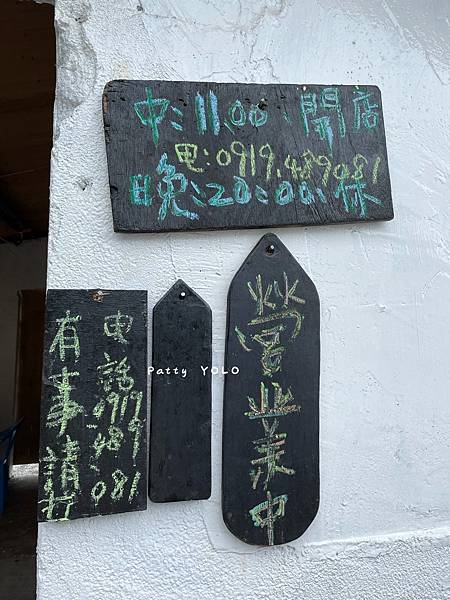 中:11:00、開店
电:0919.489081
晚:20:00、休
电話0919.489.081
有事請打
營業中
Patty YOLO